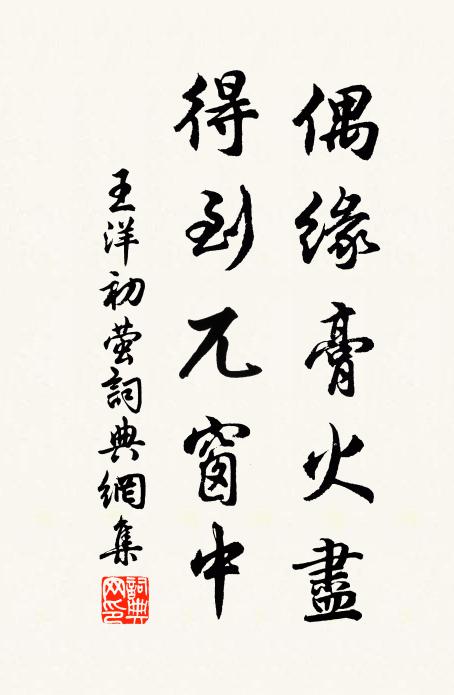 偶緣膏火盡
得到兀窗中
王洋初螢詞典網集
詞典網印